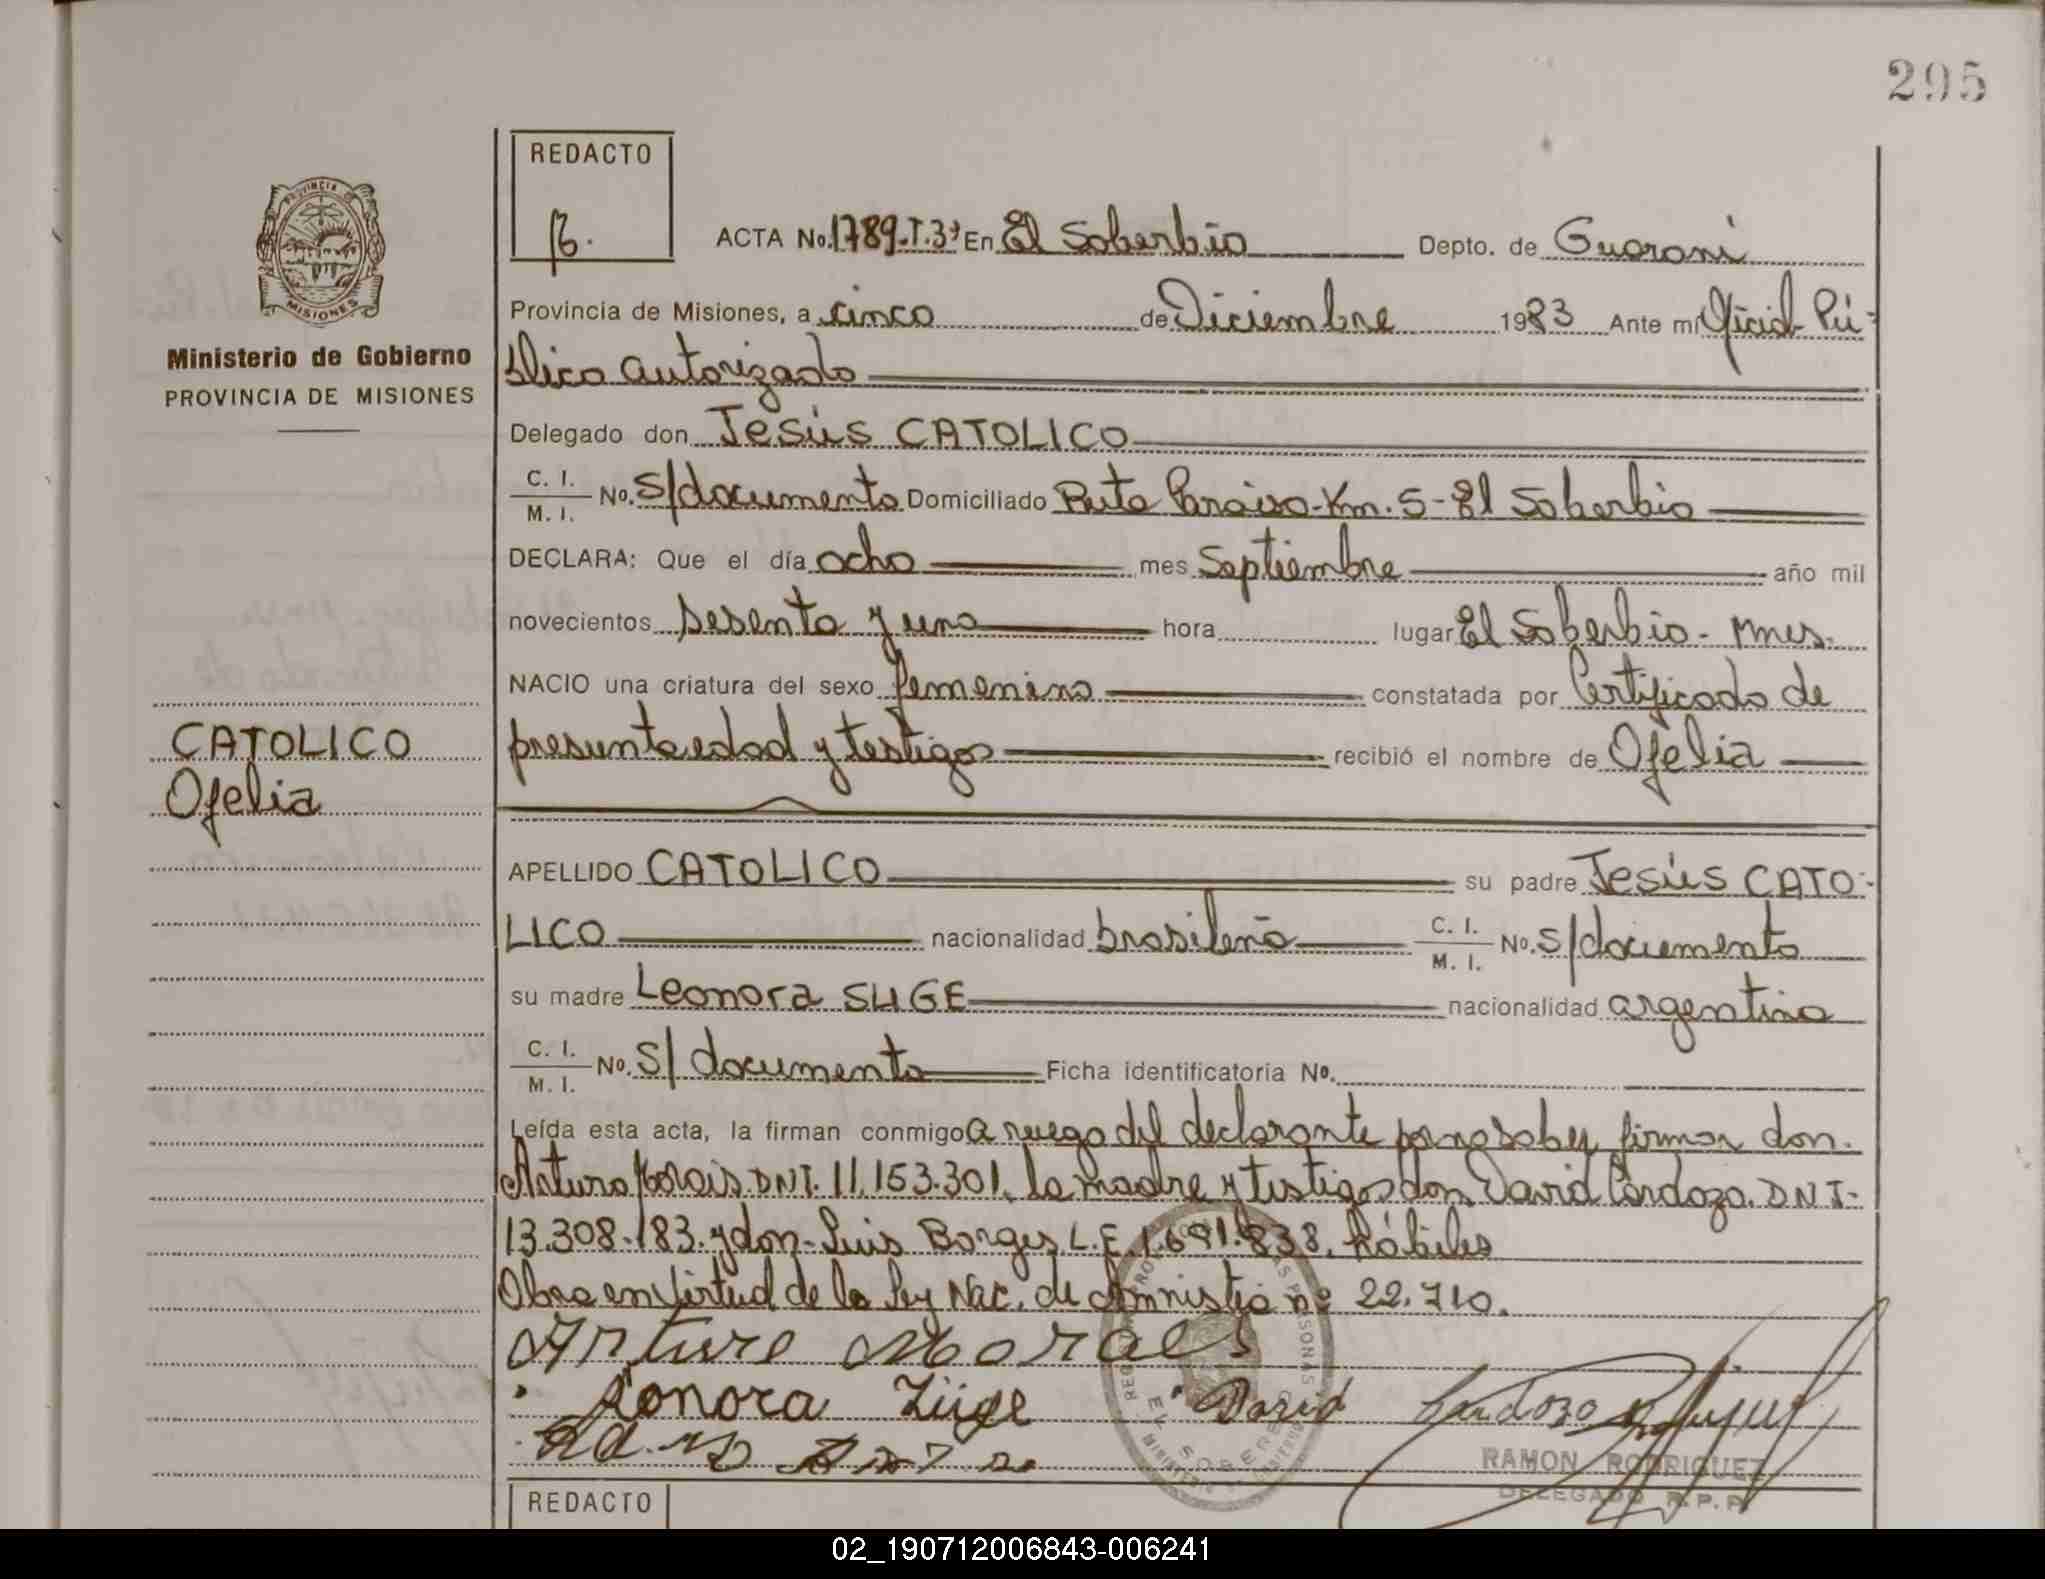 295
REDACTO
ACTA No. 1789.T.3º En El Soberbio Depto. de Guarani
Provincia de Misiones, a cinco de Diciembre 1983 Ante mí Oficial Pú-
blico autorizado
Delegado don Jesús CATOLICO
C. I.
M. I. No. S/documento Domiciliado Ruta Paraiso-Km. 5-El Soberbio
DECLARA: Que el día ocho mes Septiembre año mil
novecientos sesenta y uno hora lugar El Soberbio- Mnes.
NACIO una criatura del sexo femenino constatada por Certificado de
presunta edad y testigos recibió el nombre de Ofelia
APELLIDO CATOLICO su padre Jesús CATO-
LICO nacionalidad brasileña C. I.
M. I. No. S/documento
su madre Leonora SUGE nacionalidad argentina
C. I.
M. I. No. S/ documento Ficha identificatoria No.
Leída esta acta, la firman conmigo a ruego del declarante por no saber firmar don.
Arturo Morais DNI. 11.153.301, la madre y testigos don David Cardozo. DNI-
13.308.183. y don-Luis Borges L.E. 1.691.838. hábiles
Obra en Virtud de la Ley Nac. de Amnistia nº 22.710.
Arturo Moraes
Lonora Lüge David Cardozo
RAMON RODRIGUEZ
DELEGADO R.P.P.
REDACTO
PROVINCIA DE
MISIONES
Ministerio de Gobierno
PROVINCIA DE MISIONES
CATOLICO
Ofelia
EL SOBERBIO
02_190712006843-006241